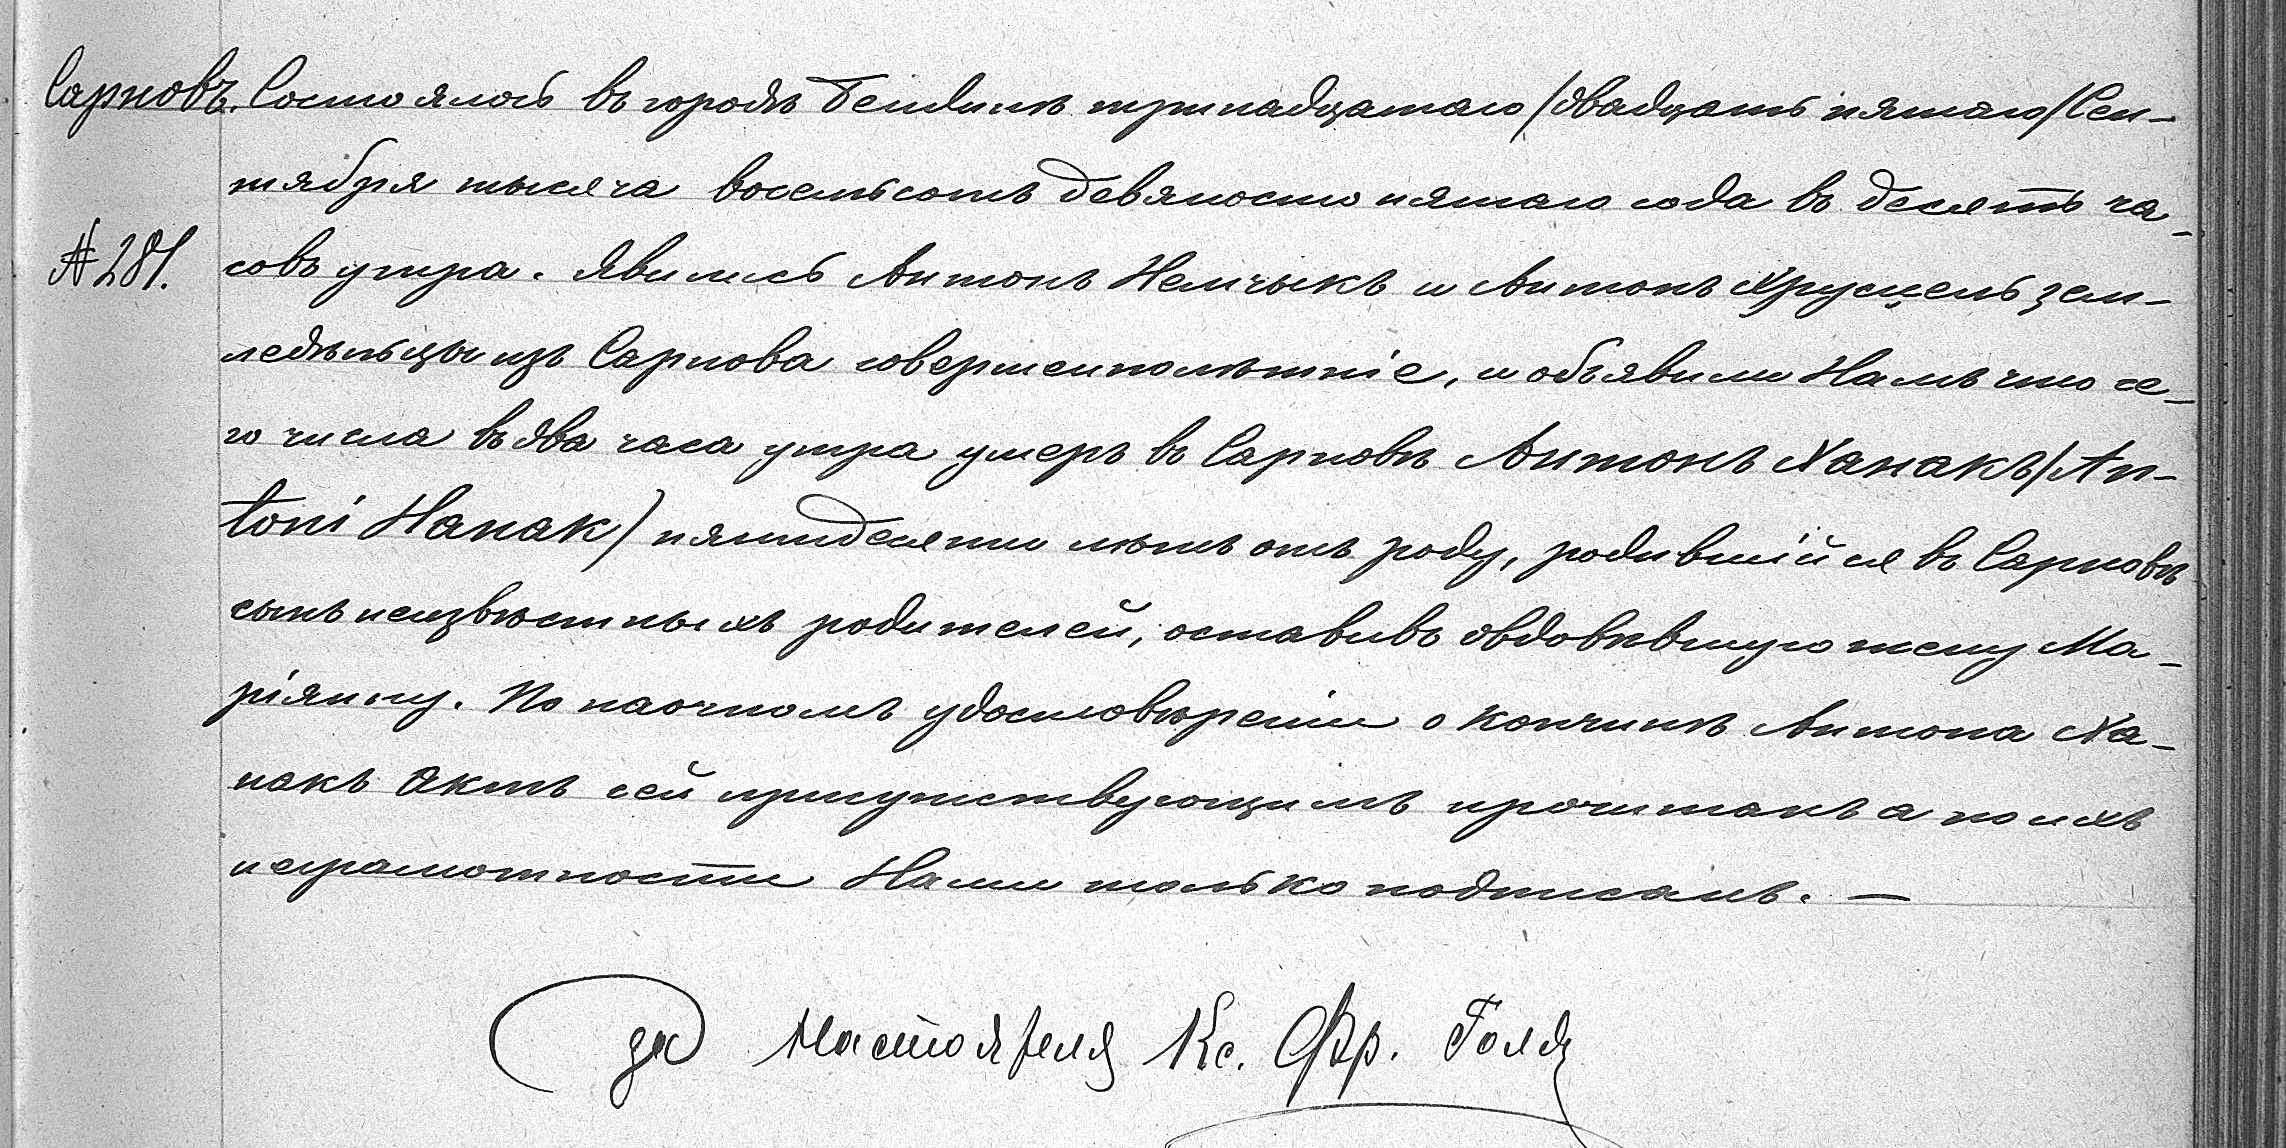 Сарновъ. Состоялось въ городѣ Бендинѣ тринадцатаго /двадцать пятаго/ Сен-
тября тысяча восемьсотъ девяносто пятаго года въ десять ча-
№ 281. совъ утра. Явились Антонъ Немчыкъ и Антонъ Хрусцель зем-
ледѣльцы изъ Сарнова совершеннолѣтніе, и объявили Намъ что се-
го числа въ два часа утра умеръ въ Сарновѣ Антонъ Ханакъ /An-
toni Hanak) пятидесяти лѣтъ отъ роду, родившійся въ Сарновѣ
сынъ неизвѣстныхъ родителей, оставивъ овдовѣвшую жену Ма-
ріянну. По наочномъ удостовѣреніи о кончинѣ Антона Ха-
накъ Актъ сей присутствующимъ прочитанъ а по ихъ
неграмотности Нами только подписанъ. —
за Настоятеля Кс. Фр.